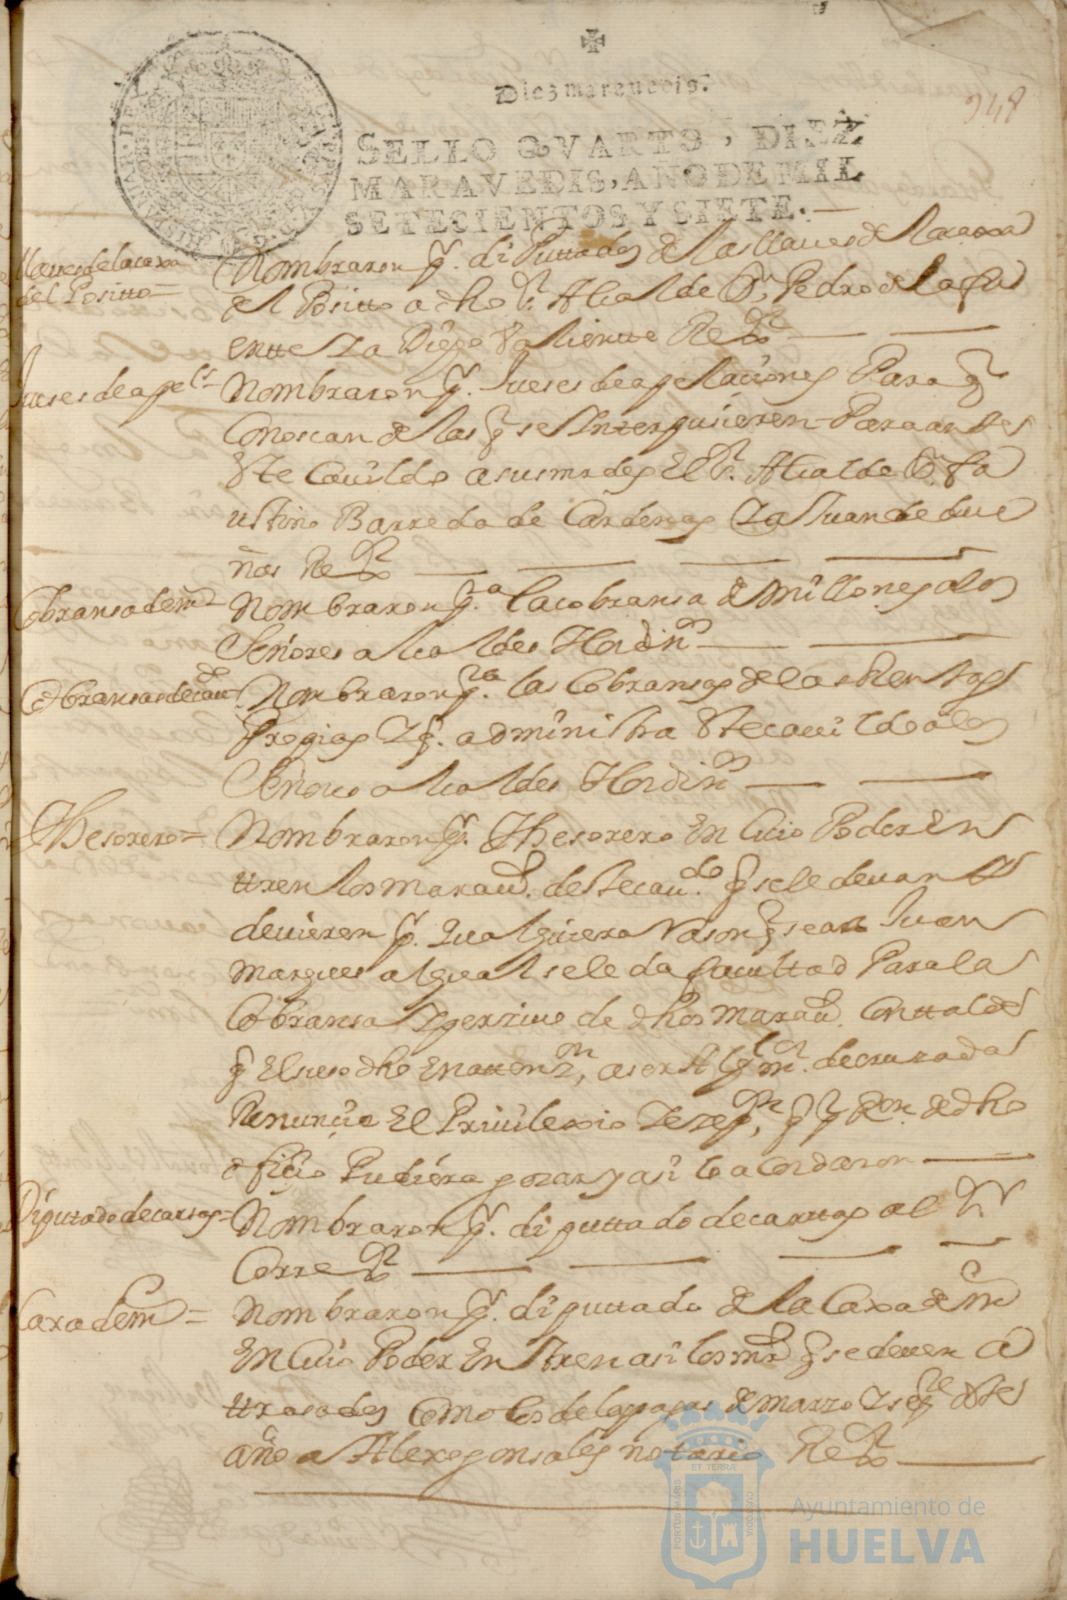 Diez maravedis.
948
SELLO QVARTO, DIEZ
MARAVEDIS, AÑO DE MIL
SETECIENTOS Y SIETE.
llaves de la caxa
del Positto=
Nombraron pr. diputtados de las llaves de la caxa
del Positto a dho Sr. Alcalde Dn Pedro de la fu
entte Y a Diego Valientte Rexdr
Jueses de apels-
Nombraron pr. Jueses de apelaciones Para q
Conoscan de las q se Interpusieren Para antte
Este Cavildo a sus mrdes El Sr. Alcalde Dn fa
ustino Barreda de Cardenas Y a Juan de due
ñas Rexdr
Cobransa de mes
Nombraron pa. la cobransa de Millones a los
Señores alcaldes Hordins
Cobransas de cavdo
Nombraron pra. las Cobransas de las Rentas
Propias Y q. administra Este cavildo a los
Señores alcaldes Hordins
Thesorero=
Nombraron pr. Thesorero En Cuio Poder En
ttren los maravs. de Este cavdo. q se le devan
devieren pr. qualquiera Rason q sea a Juan
Marques a lqual se le da facultad Para la
Cobransa Y persivo de dhos maravs. Con tal de
q El susodho En attenzn, a ser Algl mr. de cruzada
Renuncie El Privilexio Y esepn, q pr Ron. de dho
oficio Pudiera gozar y asi lo acordaron
Diputado de cartas=
Nombraron pr. diputtado de carttas al Sr
Correxdr
Caxa de ms=
Nombraron pr. diputtado de la Caxa de ms
En Cuio Poder Entren asi los mrs q se deven a
ttrasados Como los de las pagas de Marzo Y sepre deste
año a Alexo gonsales notario Rexdr
PORTUS MARIS
ET TERRÆ
CUSTODIA
Ayuntamiento de
HUELVA